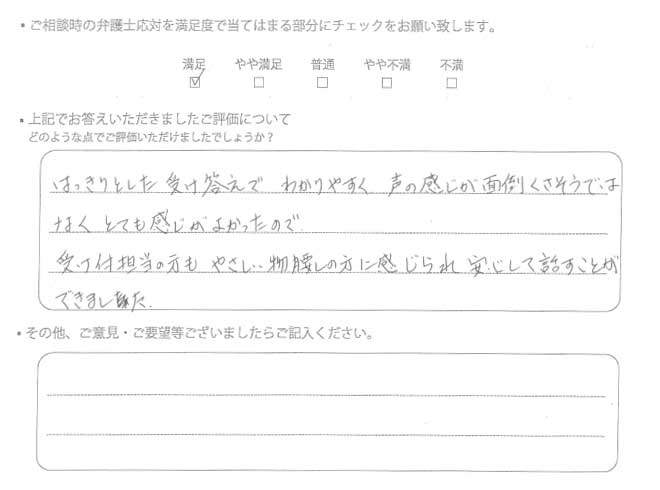 ・ご相談時の弁護士応対を満足度で当てはまる部分にチェックをお願い致します。
満足 やや満足 普通 やや不満 不満
☑ □ □ □ □
・上記でお答えいただきましたご評価について
どのような点でご評価いただけましたでしょうか？
はっきりとした 受け答えで わかりやすく 声の感じが面倒くさそうでは
なく とても感じがよかったので
受け付担当の方も やさしい物腰しの方に感じられ 安心して話すことが
できました.
・その他、ご意見・ご要望等ございましたらご記入ください。